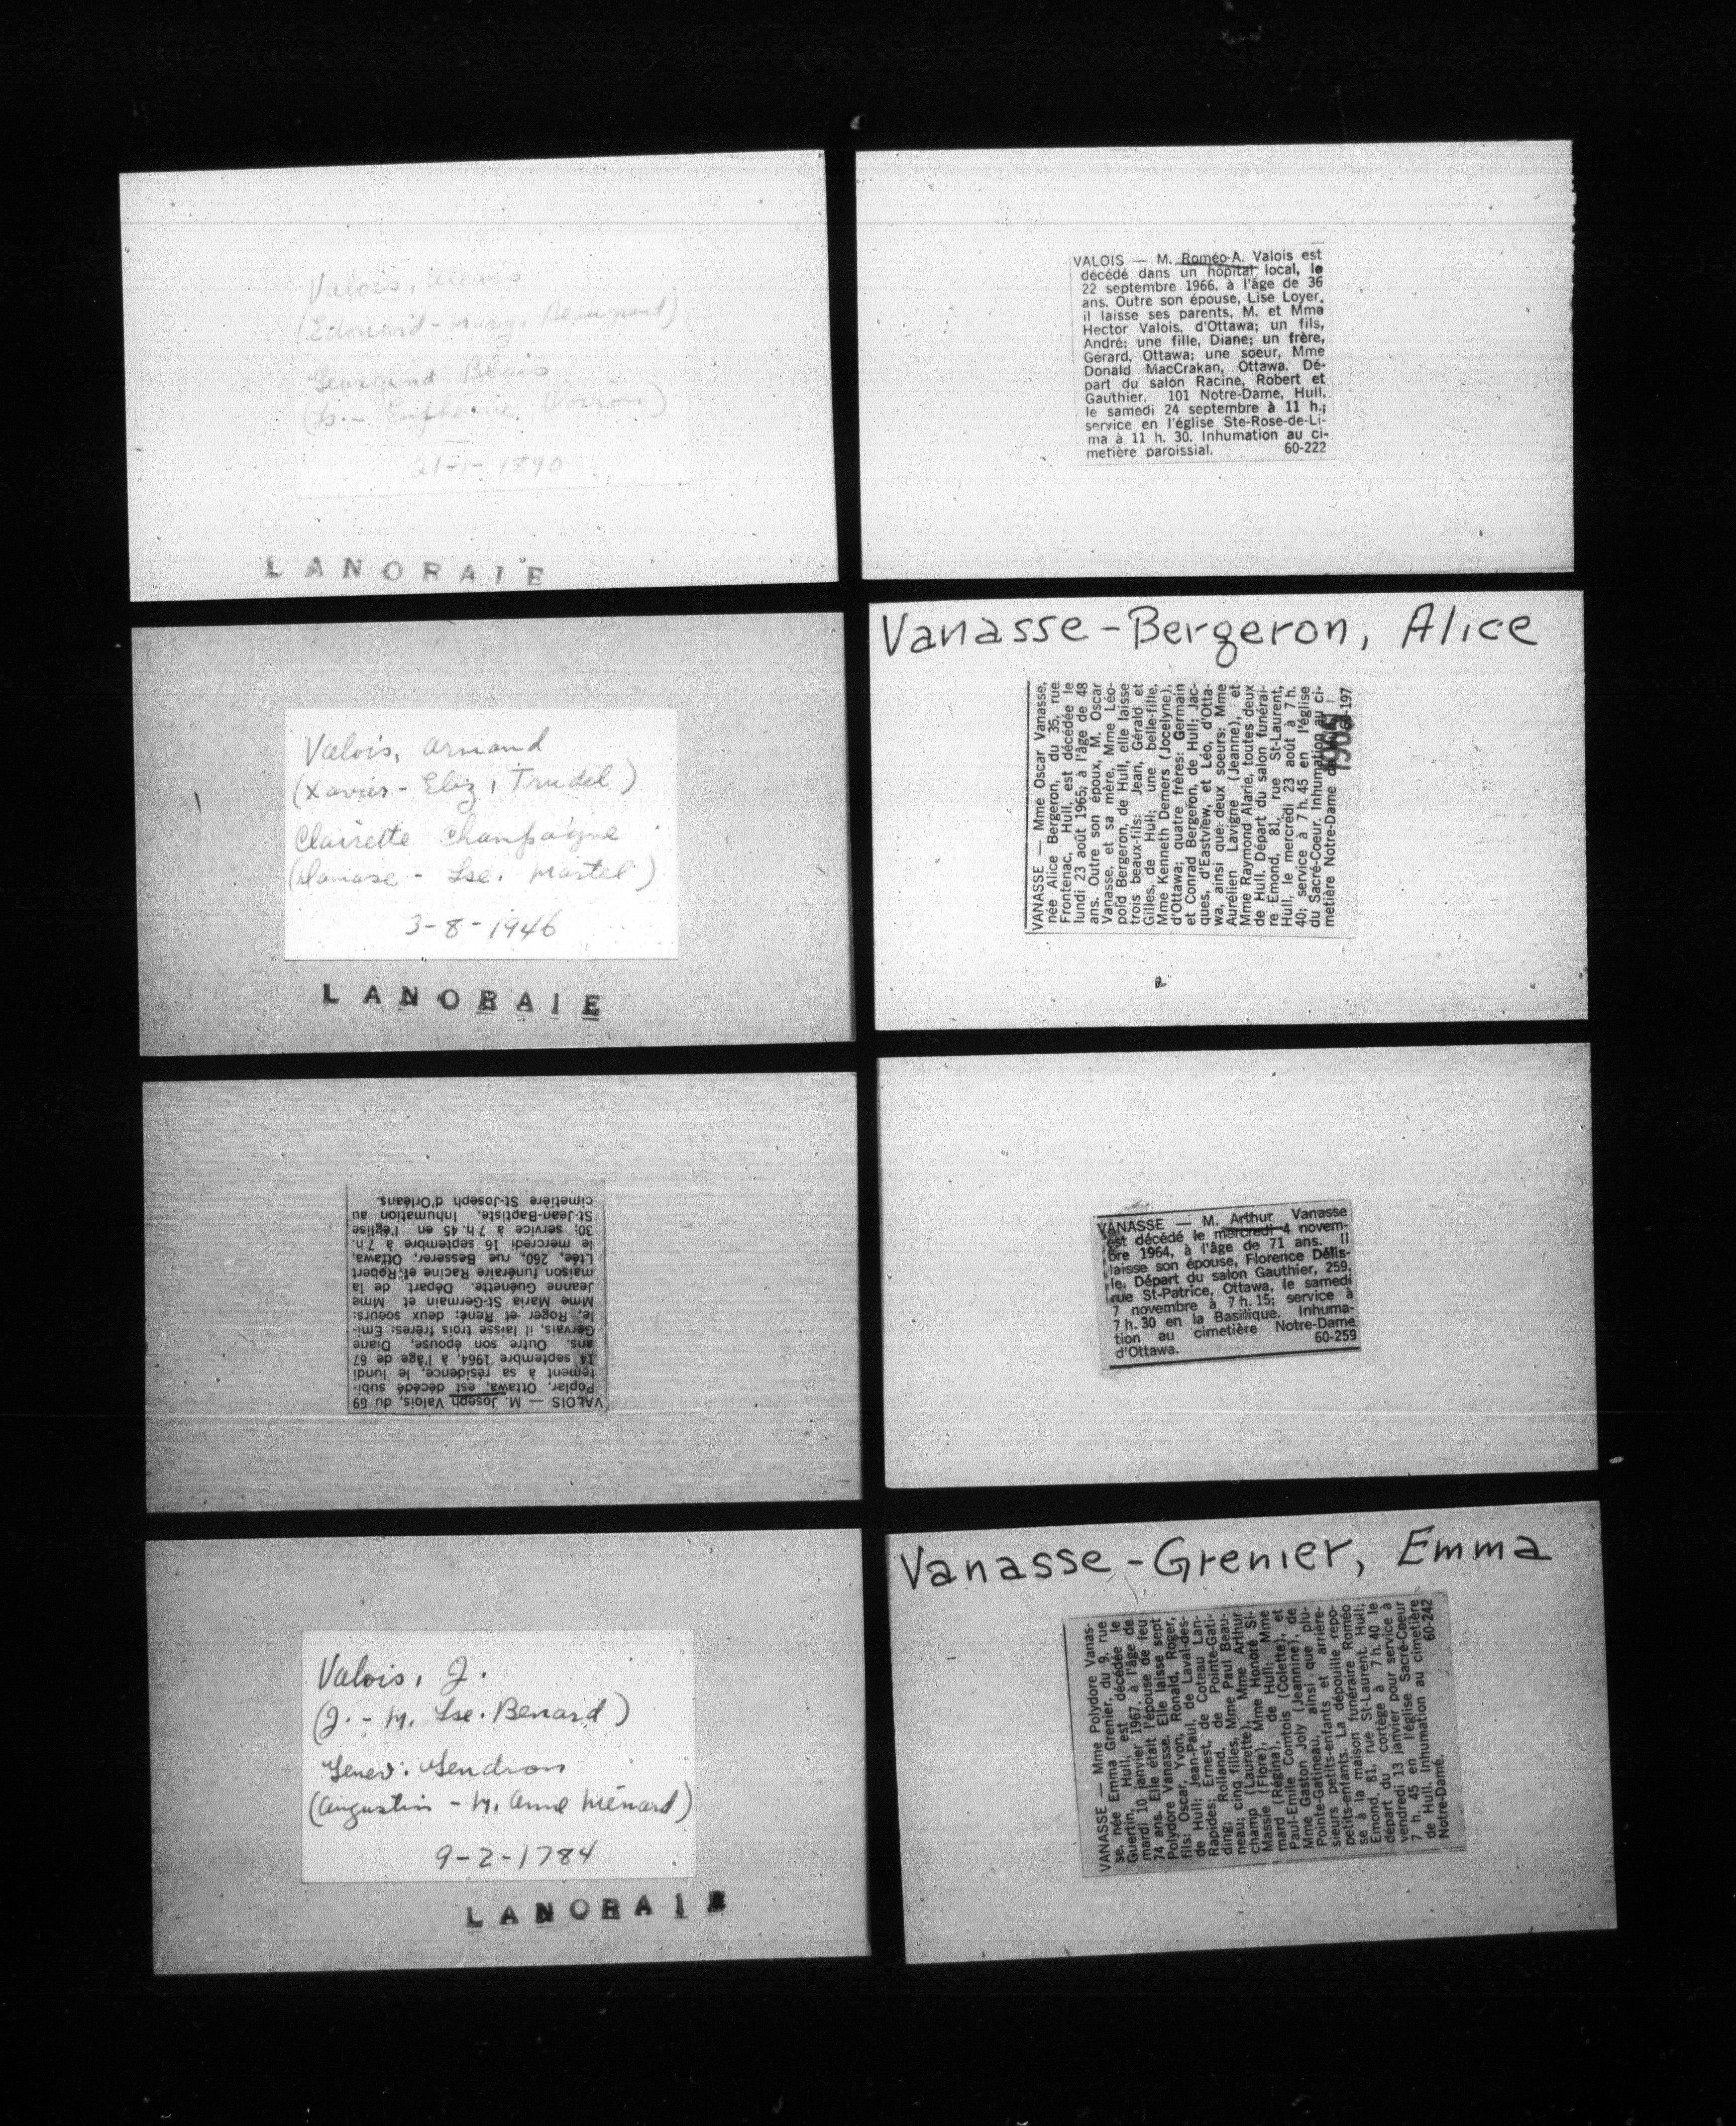 Valois, Alexis
(Edouard - Marg. Beaugrand)
Georgina Blais
21-1-1890
LANORAIE
Valois, Armand
(Xavier - Eliz. Trudel)
Clairette Champagne
(Damase - Lse. Martel)
3-8-1946
LANORAIE
VALOIS — M. Joseph Valois, du 69
Poplar, Ottawa, est décédé subi-
tement à sa résidence, le lundi
14 septembre 1964, à l'âge de 67
ans. Outre son épouse, Diane
Gervais, il laisse trois frères: Emi-
le, Roger et René; deux soeurs:
Mme Maria St-Germain et Mme
Jeanne Guénette. Départ de la
maison funéraire Racine et Robert
Ltée, 260, rue Besserer, Ottawa,
le mercredi 16 septembre à 7 h.
30; service à 7 h. 45 en l'église
St-Jean-Baptiste. Inhumation au
cimetière St-Joseph d'Orléans.
Valois, J.
(J. - M. Lse. Benard)
Genev. Gendron
(Augustin - M. Anne Ménard)
9-2-1784
LANORAIE
VALOIS — M. Roméo-A. Valois est
décédé dans un hôpital local, le
22 septembre 1966, à l'âge de 36
ans. Outre son épouse, Lise Loyer,
il laisse ses parents, M. et Mme
Hector Valois, d'Ottawa; un fils,
André; une fille, Diane; un frère,
Gérard, Ottawa; une soeur, Mme
Donald MacCrakan, Ottawa. Dé-
part du salon Racine, Robert et
Gauthier, 101 Notre-Dame, Hull,
le samedi 24 septembre à 11 h.;
service en l'église Ste-Rose-de-Li-
ma à 11 h. 30. Inhumation au ci-
metière paroissial. 60-222
Vanasse-Bergeron, Alice
VANASSE — Mme Oscar Vanasse,
née Alice Bergeron, du 35, rue
Frontenac, Hull, est décédée le
lundi 23 août 1965, à l'âge de 48
ans. Outre son époux, M. Oscar
Vanasse, et sa mère, Mme Léo-
pold Bergeron, de Hull, elle laisse
trois beaux-fils: Jean, Gérald et
Gilles, de Hull; une belle-fille,
Mme Kenneth Demers (Jocelyne),
d'Ottawa; quatre frères: Germain
et Conrad Bergeron, de Hull; Jac-
ques, d'Eastview, et Léo, d'Otta-
wa, ainsi que deux soeurs: Mme
Aurélien Lavigne (Jeanne), et
Mme Raymond Alarie, toutes deux
de Hull. Départ du salon funérai-
re Emond, 81, rue St-Laurent,
Hull, le mercredi 23 août à 7 h.
40; service à 7 h. 45 en l'église
du Sacré-Coeur. Inhumation au ci-
metière Notre-Dame de
VANASSE — M. Arthur Vanasse
est décédé le mercredi 4 novem-
bre 1964, à l'âge de 71 ans. Il
laisse son épouse, Florence Délis-
le. Départ du salon Gauthier, 259,
rue St-Patrice, Ottawa, le samedi
7 novembre à 7 h. 15; service à
7 h. 30 en la Basilique. Inhuma-
tion au cimetière Notre-Dame
d'Ottawa. 60-259
Vanasse-Grenier, Emma
VANASSE — Mme Polydore Vanas-
se, née Emma Grenier, du 9, rue
Guertin, Hull, est décédée le
mardi 10 janvier 1967, à l'âge de
74 ans. Elle était l'épouse de feu
Polydore Vanasse. Elle laisse sept
fils: Oscar, Yvon, Ronald, Roger,
de Hull; Jean-Paul, de Laval-des-
Rapides; Ernest, de Coteau Lan-
ding; Rolland, de Pointe-Gati-
neau; cinq filles, Mme Paul Beau-
champ (Laurette), Mme Arthur
Massie (Flore), Mme Honoré Si-
mard (Régina), de Hull; Mme
Paul-Emile Comtois (Colette), et
Mme Gaston Joly (Jeannine), de
Pointe-Gatineau, ainsi que plu-
sieurs petits-enfants et arrière-
petits-enfants. La dépouille repo-
se à la maison funéraire Roméo
Emond, 81, rue St-Laurent, Hull;
départ du cortège à 7 h. 40 le
vendredi 13 janvier pour service à
7 h. 45 en l'église Sacré-Coeur
de Hull. Inhumation au cimetière
Notre-Dame. 60-242